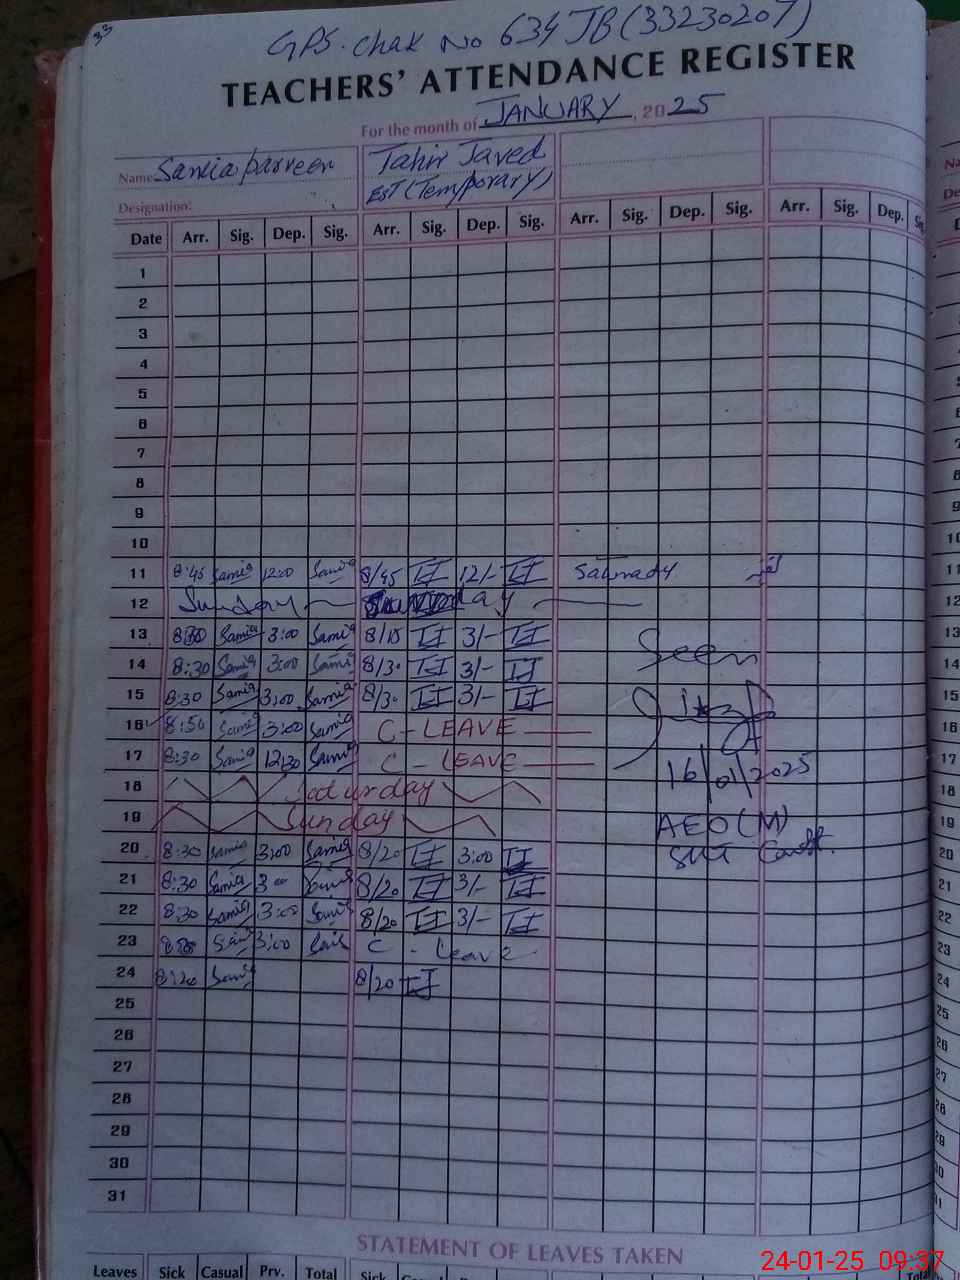 33
GPS. chak No 634 JB (33230207)
TEACHERS' ATTENDANCE REGISTER
For the month of JANUARY, 2025
Name: Samia parveen Tahir Javed
EST (Temporary)
Designation:
Date Arr. Sig. Dep. Sig. Arr. Sig. Dep. Sig. Arr. Sig. Dep. Sig. Arr. Sig. Dep.
1
2
3
4
5
6
7
8
9
10
11 8:45 Samia 12:00 Samia 8/45 TJ 12/- TJ
12 Sunday Sunday
13 8:30 Samia 3:00 Samia 8/15 TJ 3/- TJ
14 8:30 Samia 3:00 Samia 8/30 TJ 3/- TJ Seen
15 8:30 Samia 3:00 Samia 8/30 TJ 3/- TJ
16 8:30 Samia 3:00 Samia C - LEAVE
17 8:30 Samia 12:30 Samia C - LEAVE 16/01/2025
18 Saturday
19 Sunday AEO (M)
20 8:30 Samia 3:00 Samia 8/20 TJ 3:00 TJ
21 8:30 Samia 3:00 Samia 8/20 TJ 3/- TJ
22 8:30 Samia 3:00 Samia 8/20 TJ 3/- TJ
23 3:00 C - Leave
24 8:20 Samia 8/20 TJ
25
26
27
28
29
30
31
STATEMENT OF LEAVES TAKEN
Leaves Sick Casual Prv. Total Sick
24-01-25 09:37